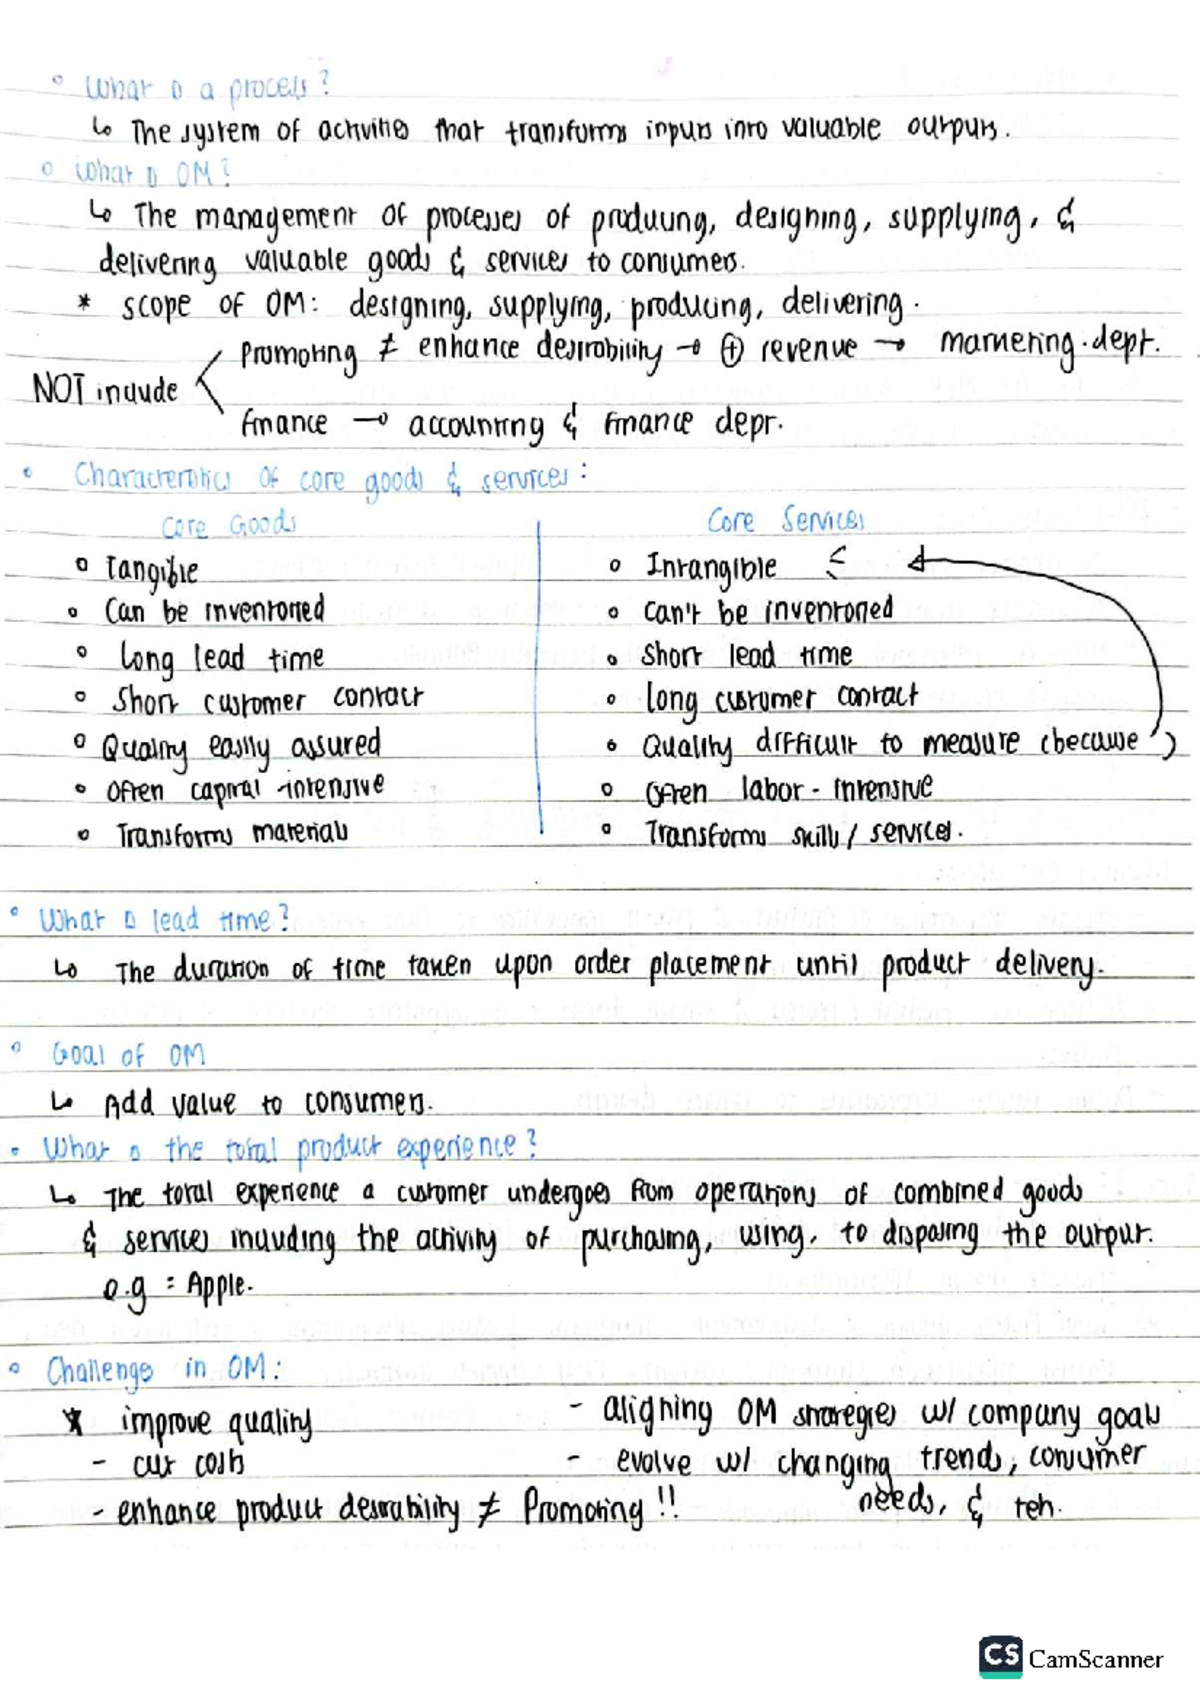 ° What is a process?
↳ The system of activities that transforms inputs into valuable outputs.
° What is OM?
↳ The management of processes of producing, designing, supplying, &
delivering valuable goods & services to consumers.
* scope of OM: designing, supplying, producing, delivering.
Promoting ≠ enhance desirability → ⊕ revenue → marketing dept.
NOT include <
finance → accounting & finance dept.
• Characteristics of core goods & services:
Core Goods | Core Services
° Tangible | ° Intangible
° Can be inventoried | ° can't be inventoried
° Long lead time | ° Short lead time
° Short customer contact | ° Long customer contact
° Quality easily assured | ° Quality difficult to measure (because )
° Often capital-intensive | ° Often labor-intensive
° Transforms materials | ° Transforms skills / services.
° What is lead time?
↳ The duration of time taken upon order placement until product delivery.
° Goal of OM
↳ Add value to consumers.
° What is the total product experience?
↳ The total experience a customer undergoes from operations of combined goods
& services including the activity of purchasing, using, to disposing the output.
e.g = Apple.
° Challenge in OM:
* improve quality
- cut costs
- enhance product desirability ≠ Promoting !!
- aligning OM strategies w/ company goals
- evolve w/ changing trends, consumer
needs, & teh.
CS CamScanner